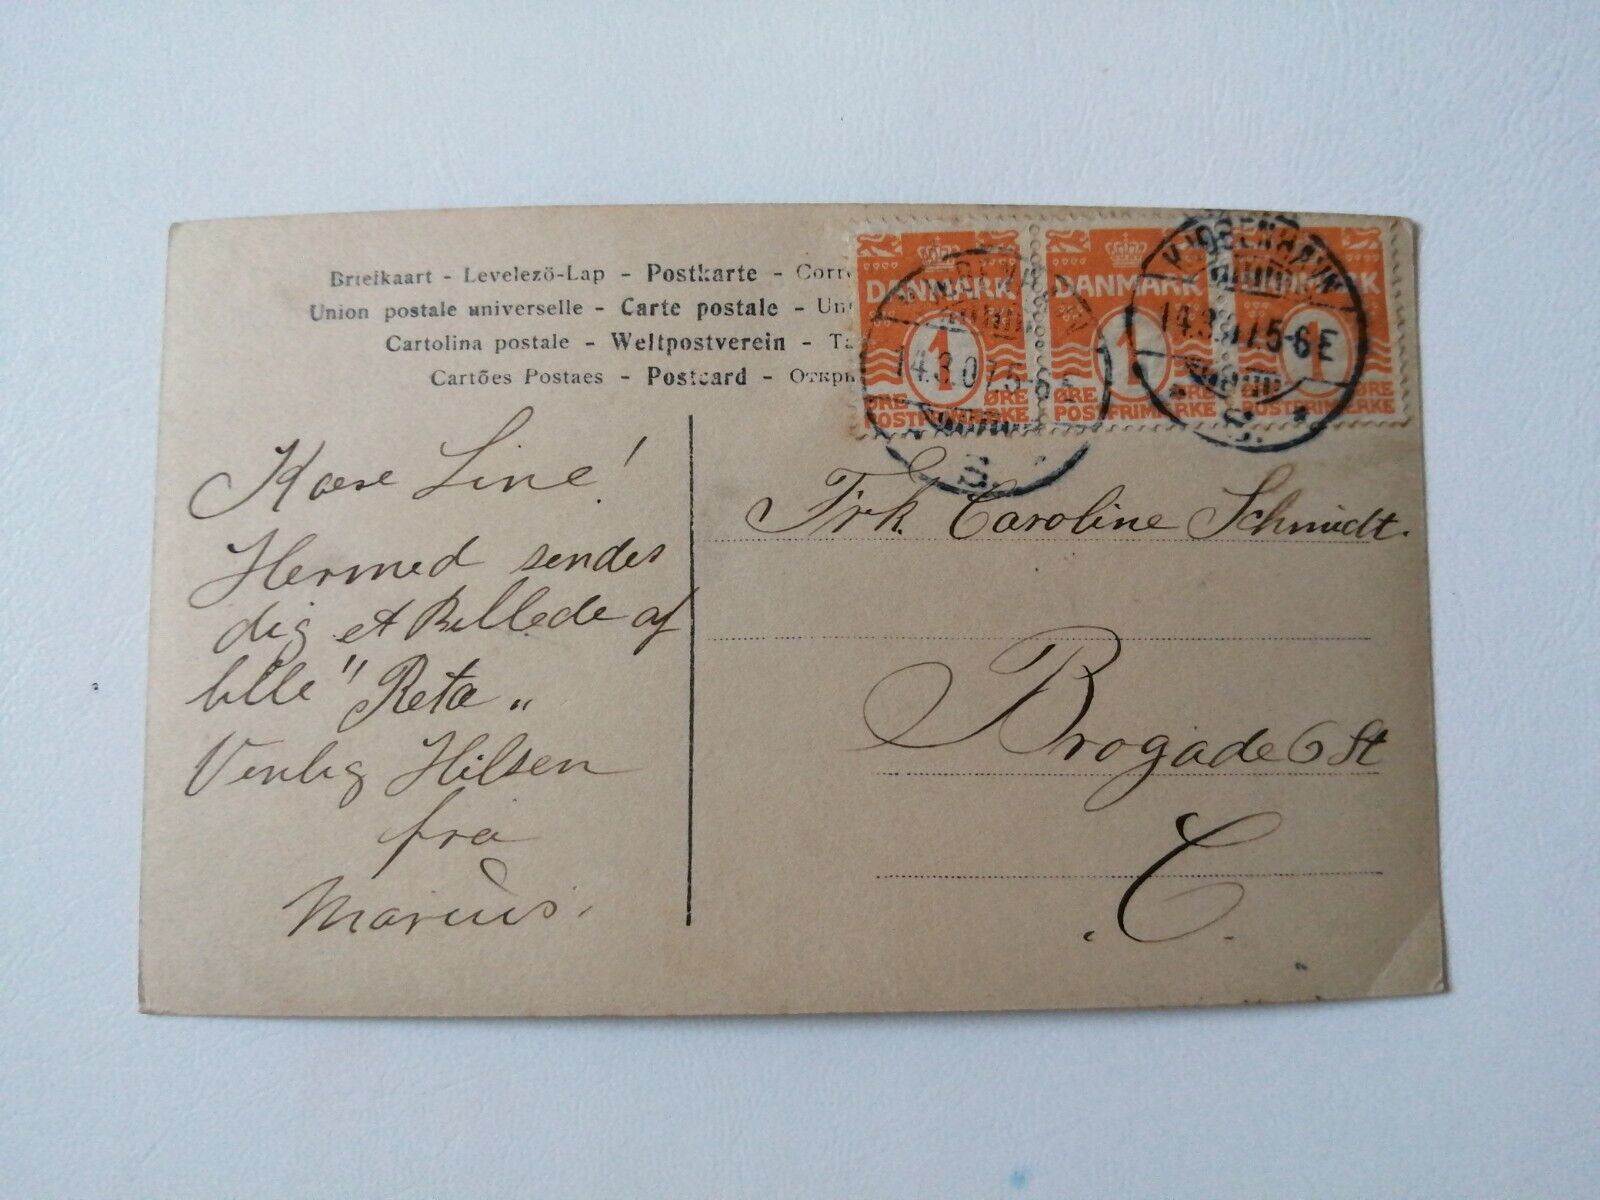 Briefkaart - Levelező-Lap - Postkarte - Corr
Union postale universelle - Carte postale - Un
Cartolina postale - Weltpostverein - Ta
Cartões Postaes - Postcard - Откры
DANMARK DANMARK DANMARK
1 1 1
ØRE ØRE ØRE ØRE ØRE
POSTFRIMÆRKE POSTFRIMÆRKE POSTFRIMÆRKE
KJØBENHAVN
14.3.07.5-6E
KJØBENHAVN
14.3.07.5-6E
Kære Line!
Hermed sendes
dig et Billede af
lille "Reta"
Venlig Hilsen
fra
Marius.
Frk. Caroline Schmidt.
Brogade 6 St
C.